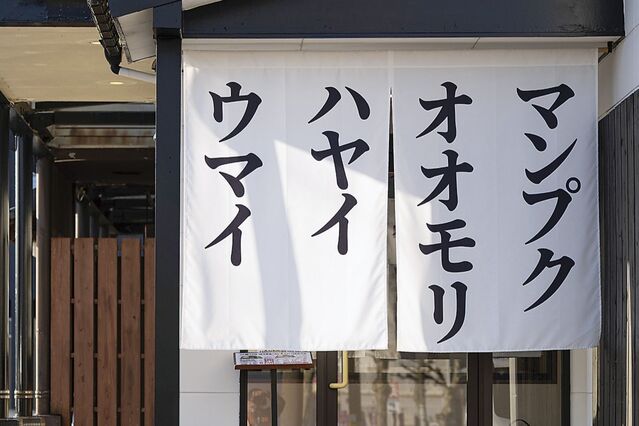 マンプク
オオモリ
ハヤイ
ウマイ